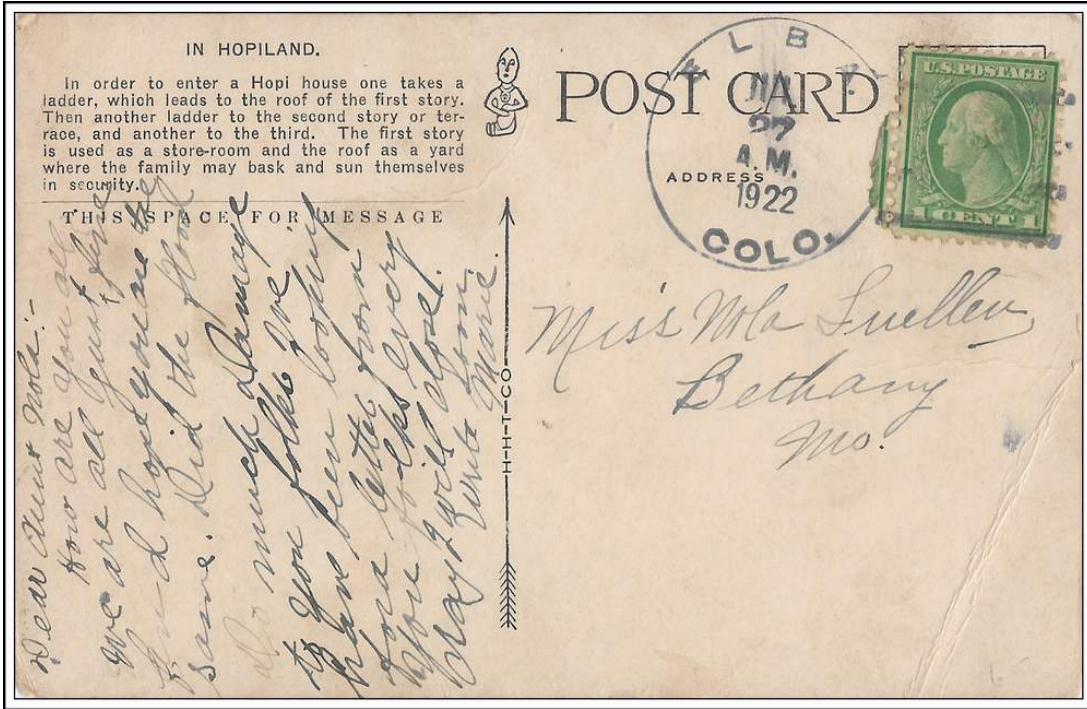 IN HOPILAND.
In order to enter a Hopi house one takes a
ladder, which leads to the roof of the first story.
Then another ladder to the second story or ter-
race, and another to the third. The first story
is used as a store-room and the roof as a yard
where the family may bask and sun themselves
in security.
THIS SPACE FOR MESSAGE
Dear Aunt Nola:-
How are you all
We are all fine
and hope you are the
same. Did the flood
do much damage
to you folks I've
have been looking
for a letter from
you folks every
day I will close.
Write soon.
Marie.
H-H-T-CO
POST CARD
ADDRESS
27
A.M.
1922
COLO.
U.S. POSTAGE
1 CENT 1
Miss Nola Luellen
Bethany
Mo.